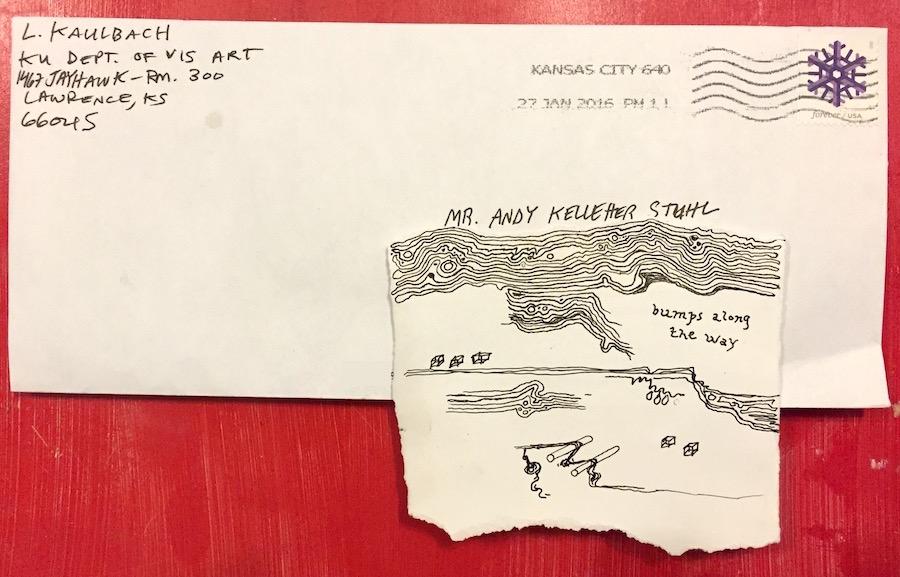 L. KAULBACH
KU DEPT. OF VIS ART
1467 JAYHAWK - RM. 300
LAWRENCE, KS
66045
KANSAS CITY 640
27 JAN 2016 PM 1 L
forever / USA
MR. ANDY KELLEHER STUHL
bumps along
the way